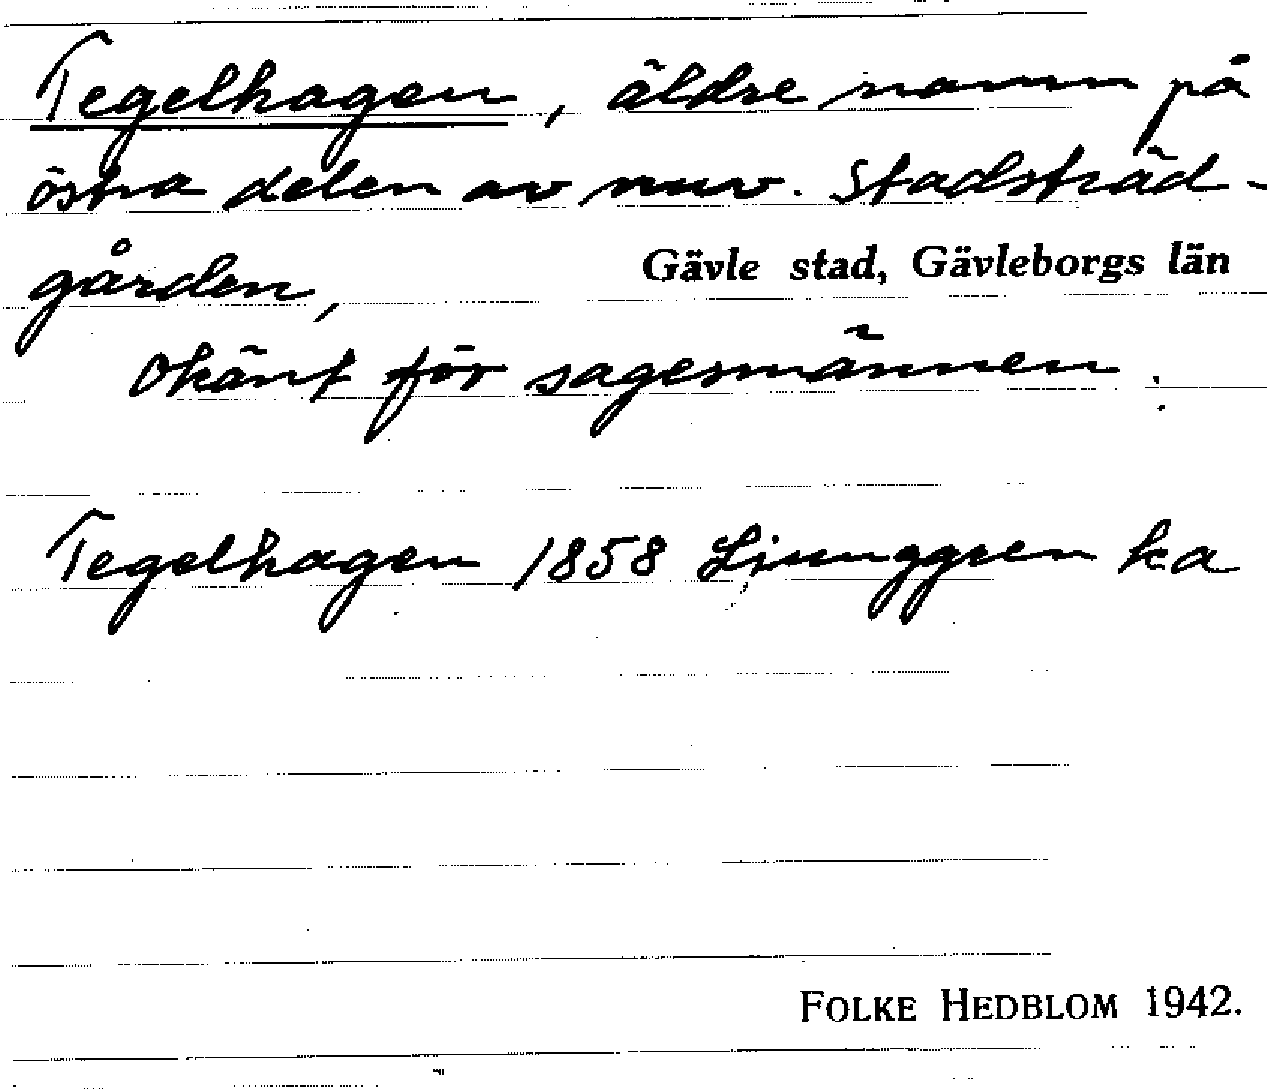 Tegelhagen, äldre namn på
östra delen av nuv. Stadsträd-
gården,
Gävle stad, Gävleborgs län
Okänt för sagesmännen.
Tegelhagen 1858 Ljunggren ka
FOLKE HEDBLOM 1942.